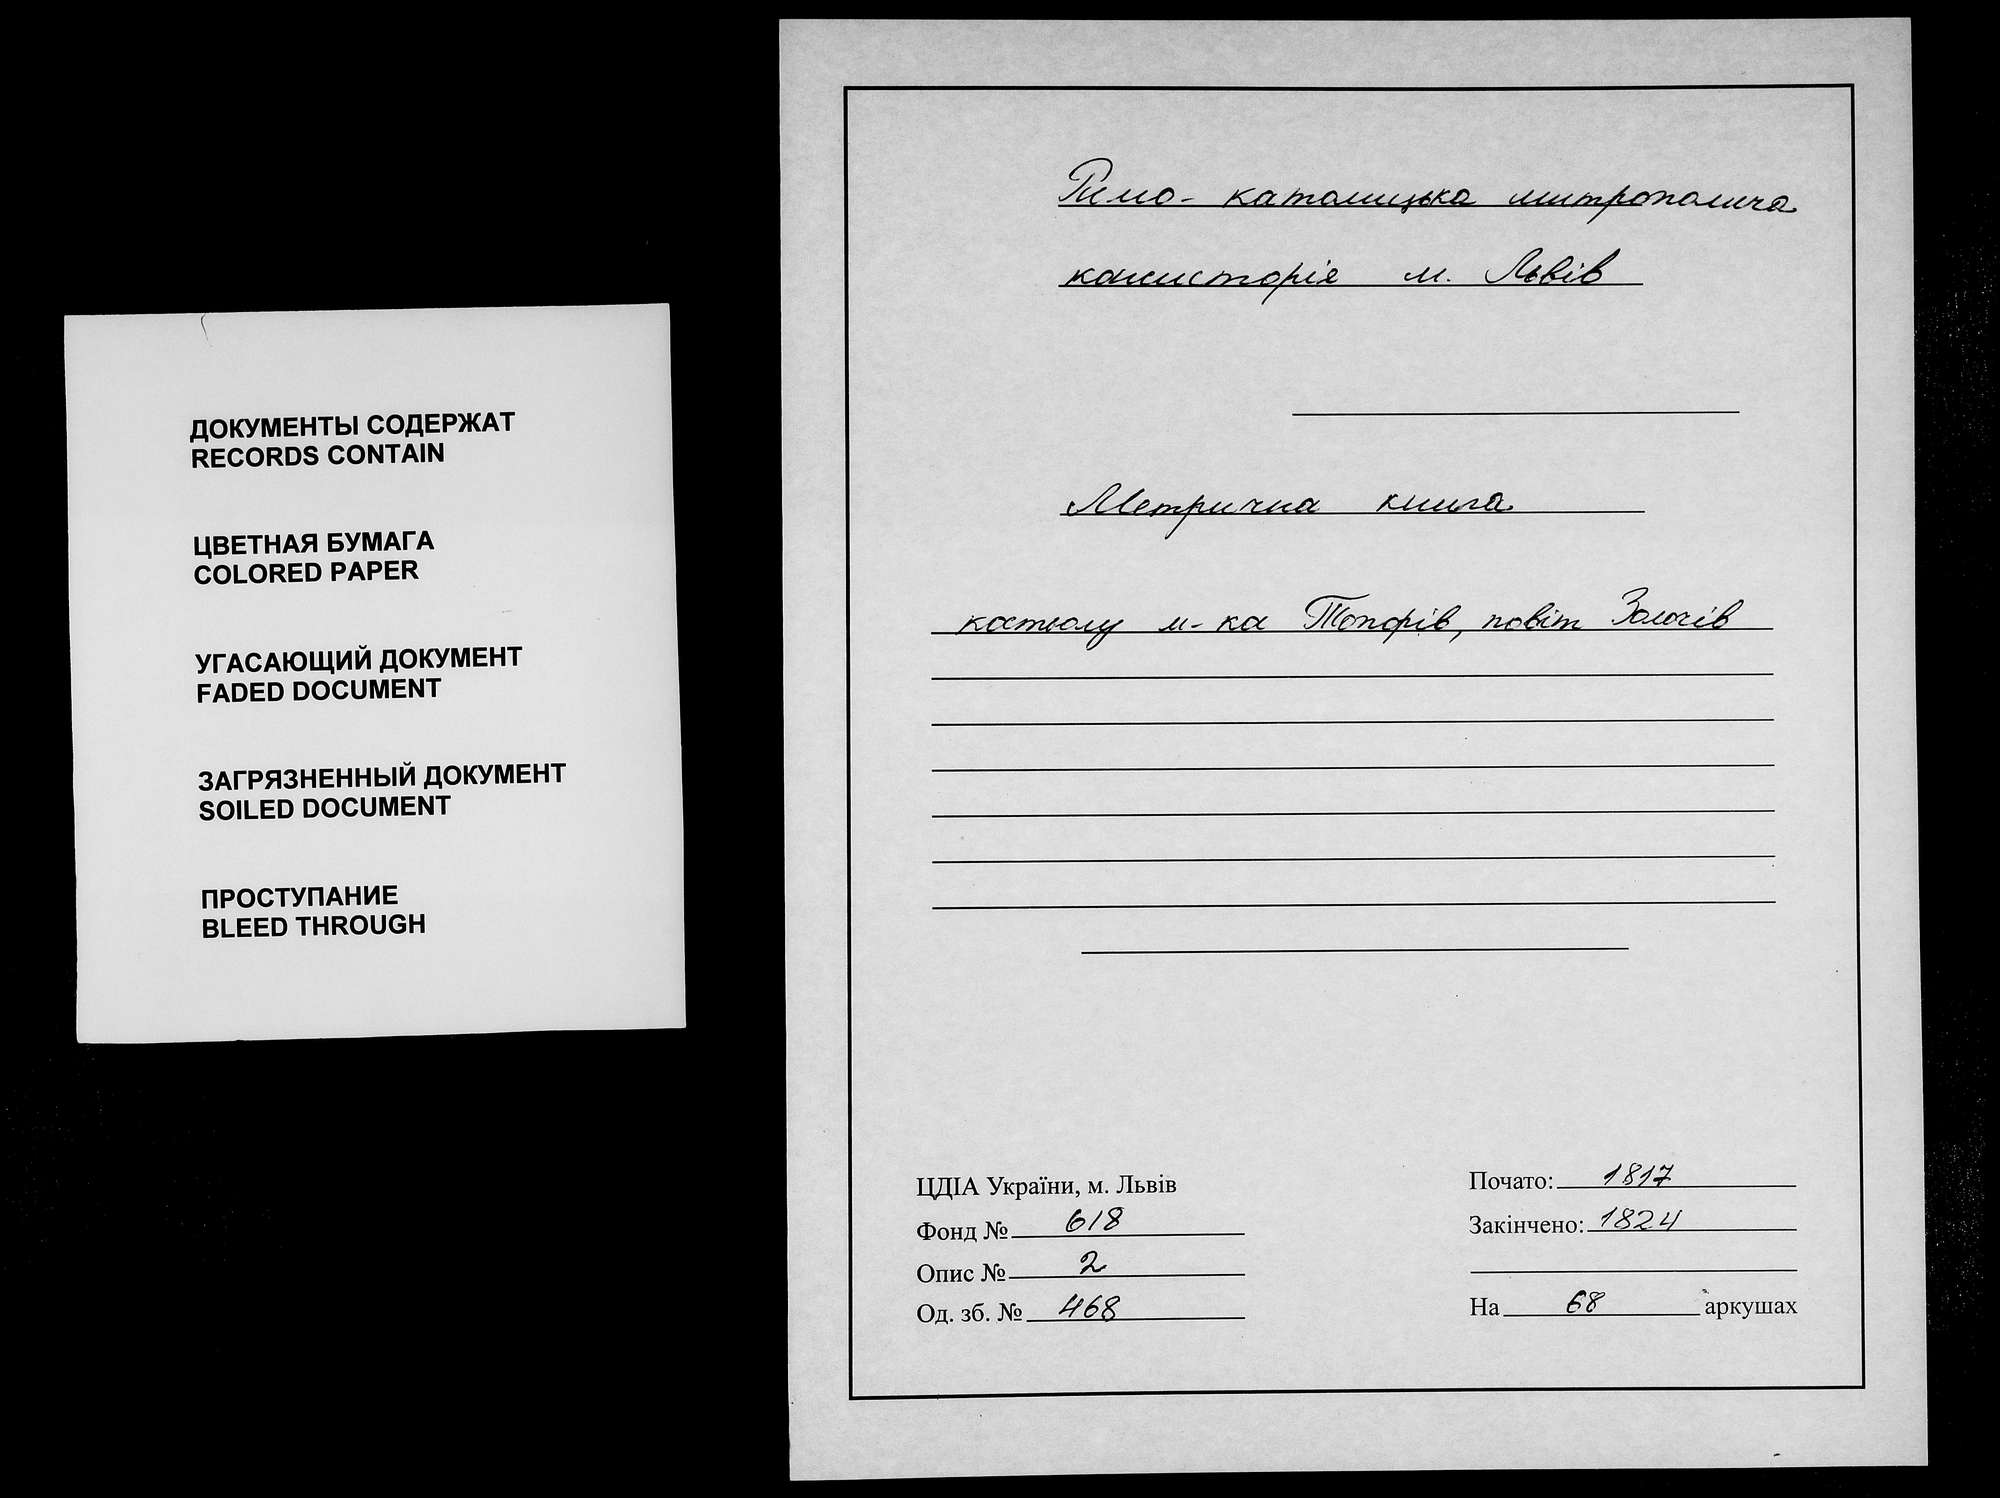 ДОКУМЕНТЫ СОДЕРЖАТ
RECORDS CONTAIN
ЦВЕТНАЯ БУМАГА
COLORED PAPER
УГАСАЮЩИЙ ДОКУМЕНТ
FADED DOCUMENT
ЗАГРЯЗНЕННЫЙ ДОКУМЕНТ
SOILED DOCUMENT
ПРОСТУПАНИЕ
BLEED THROUGH
Римо-католицька митрополича
консисторія м. Львів
Метрична книга
костьолу м-ка Топорів, повіт Золочів
ЦДІА України, м. Львів
Фонд № 618
Опис № 2
Од. зб. № 468
Почато: 1817
Закінчено: 1824
На 68 аркушах